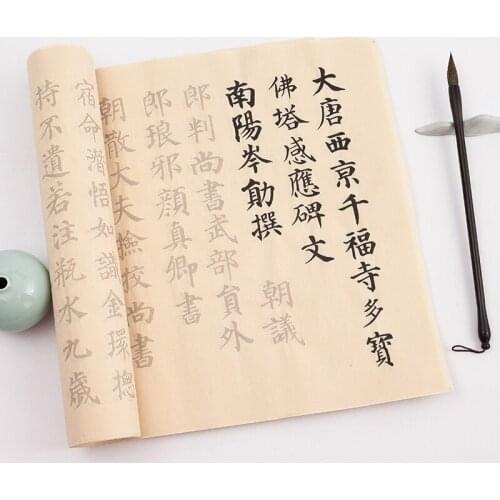 大唐西京千福寺多寶
佛塔感應碑文
南陽岑勛撰朝議
郎判尚書武部員外
郎琅邪顏真卿書
朝散大夫撿校尚書
宿命潛悟如識金環摠
持不遺若注瓶水九歲